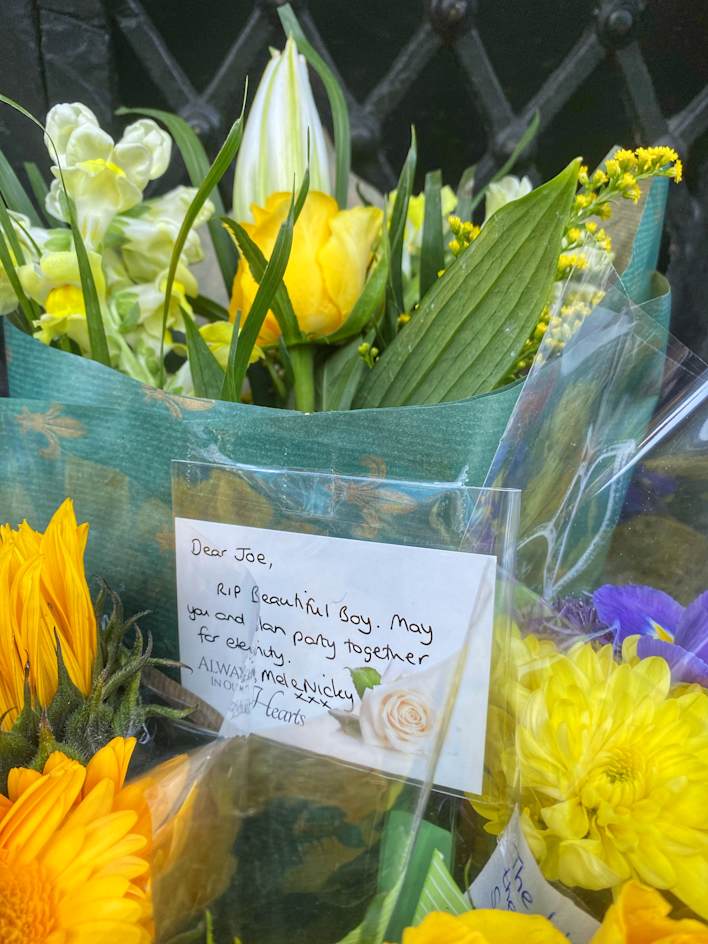 Dear Joe,
RIP Beautiful Boy. May
you and party together
for eternity.
ALWAYS
Mel & Nicky
IN OUR
xxx
Hearts
The